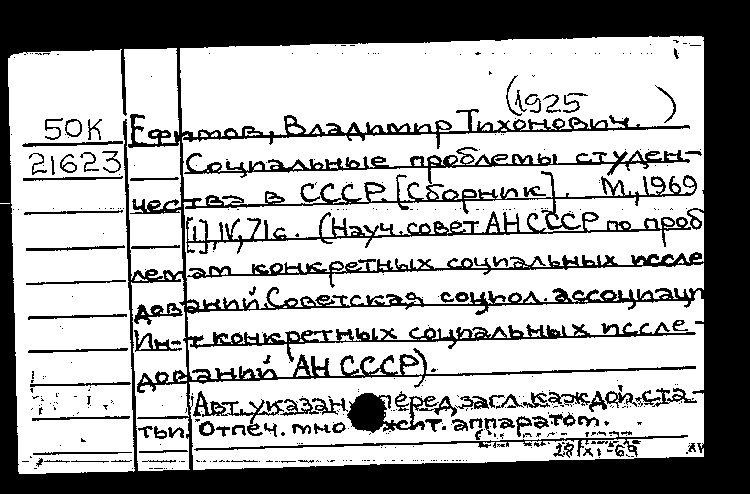 (1925 )
50К Ефимов, Владимир Тихонович.
21623 Социальные проблемы студен-
чества в СССР. [Сборник]. М., 1969.
[1], IV, 71 с. (Науч. совет АН СССР по проб
лемам конкретных социальных иссле
дований. Советская социол. ассоциаци
Ин-т конкретных социальных иссле-
дований АН СССР).
Авт. указан перед загл. каждой ста-
тьи. Отпеч. мно жит. аппаратом.
28/XI-69